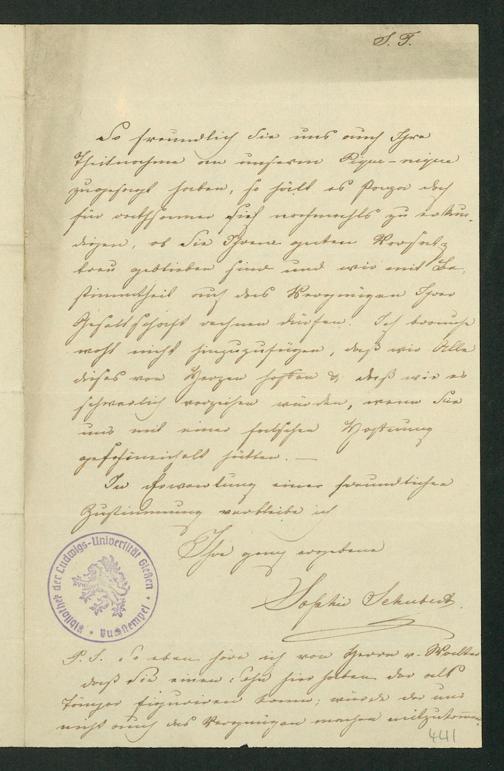 S. T.
So freundlich Sie uns auch Ihre
Theilnahme an unserem Pique-nique
zugesagt haben, so hält es Papa doch
für rathsamer sich nochmals zu erkun-
digen, ob Sie Ihrem guten Vorsatz
treu geblieben sind und wir mit Be-
stimmtheit auf das Vergnügen Ihrer
Gesellschaft rechnen dürfen. Ich brauche
wohl nicht hinzuzufügen, daß wir Alle
dieses von Herzen hoffen & daß wir es
schwerlich verzeihen würden, wenn Sie
uns mit einer falschen Hoffnung
geschmeichelt hätten. —
In Erwartung einer freundlichen
Zustimmung verbleibe ich
Ihre ganz ergebene
Sophie Schubert.
P. S. So eben höre ich von Herrn v.
daß Sie einen Sohn hier haben der als
Tänzer figuriren kann; würde der uns
nicht auch das Vergnügen machen mitzukommen
Bibliothek der Ludwigs-Universität Gießen
441